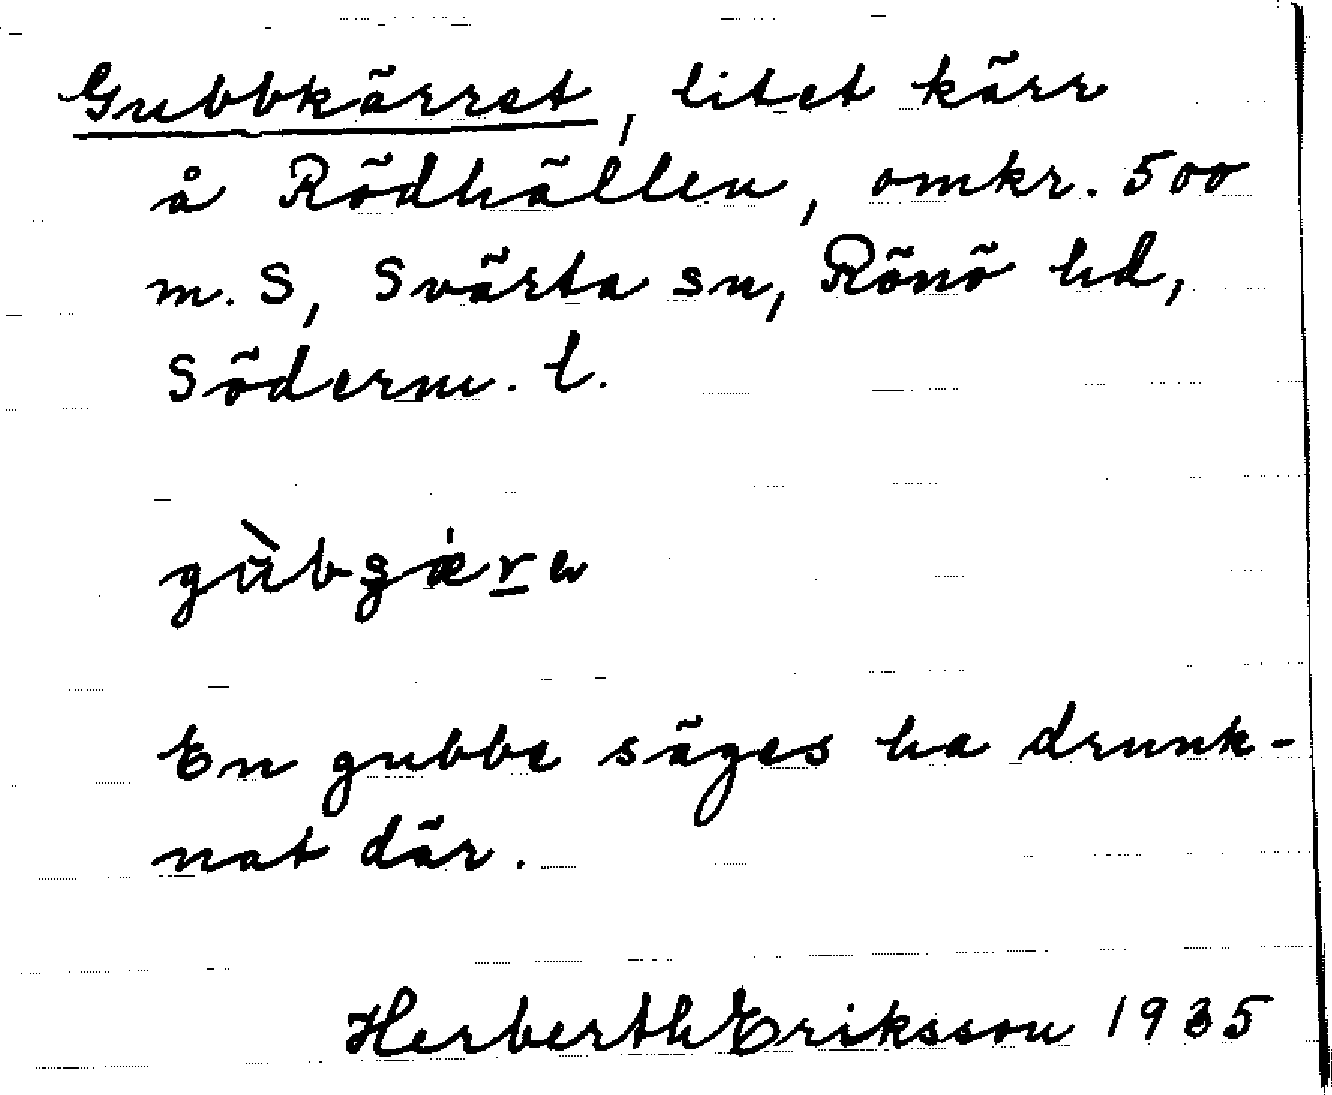 Gubbkärret, litet kärr
å Rödhällen, omkr. 500
m. S, Svärta sn, Rönö hd,
Söderm. l.
En gubbe säges ha drunk-
nat där.
Herberth Eriksson 1935